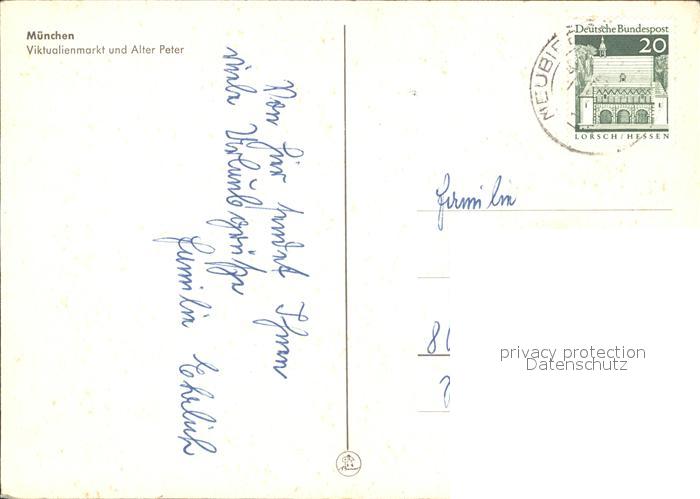 München
Viktualienmarkt und Alter Peter
Von hier sendet Ihnen
viele Urlaubsgrüße
Familie Ehrlich
Deutsche Bundespost
20
LORSCH/HESSEN
NEUBIBE
Familie
81
privacy protection
Datenschutz